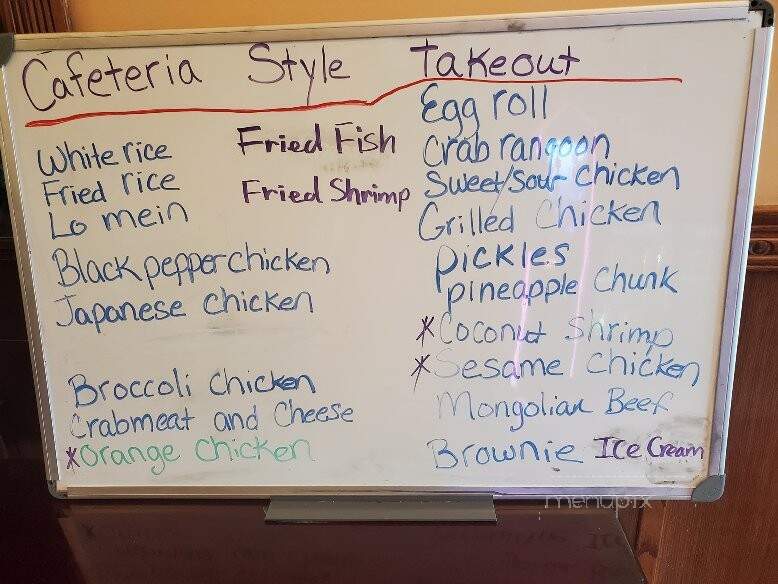 Cafeteria Style Takeout
White rice
Fried rice
Lo mein
Black pepper chicken
Japanese chicken
Broccoli Chicken
Crabmeat and Cheese
*Orange Chicken
Fried Fish
Fried Shrimp
Egg roll
Crab rangoon
Sweet/Sour Chicken
Grilled Chicken
Pickles
pineapple Chunk
*Coconut Shrimp
*Sesame Chicken
Mongolian Beef
Brownie Ice Cream
menupix